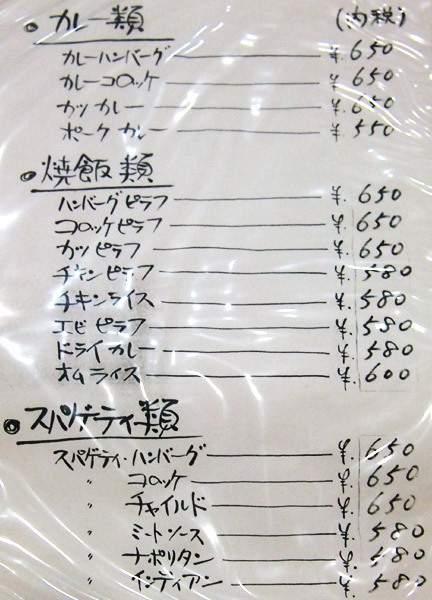 ● カレー類 (内税)
カレーハンバーグ ―― ¥.650
カレーコロッケ ―― ¥.650
カツ カレー ―― ¥.650
ポーク カレー ―― ¥.550
● 焼飯類
ハンバーグピラフ ―― ¥.650
コロッケピラフ ―― ¥.650
カツピラフ ―― ¥.650
チキンピラフ ―― ¥.580
チキンライス ―― ¥.580
エビピラフ ―― ¥.580
ドライカレー ―― ¥.580
オムライス ―― ¥.600
● スパゲーティ類
スパゲティ・ハンバーグ ―― ¥.650
〃 コロッケ ―― ¥.650
〃 チャイルド ―― ¥.650
〃 ミートソース ―― ¥.580
〃 ナポリタン ―― ¥.580
〃 インディアン ―― ¥.580